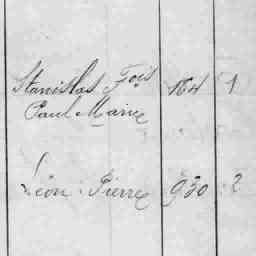 Stanislas Fois 164 1
Paul Marie
Léon Pierre 930 2